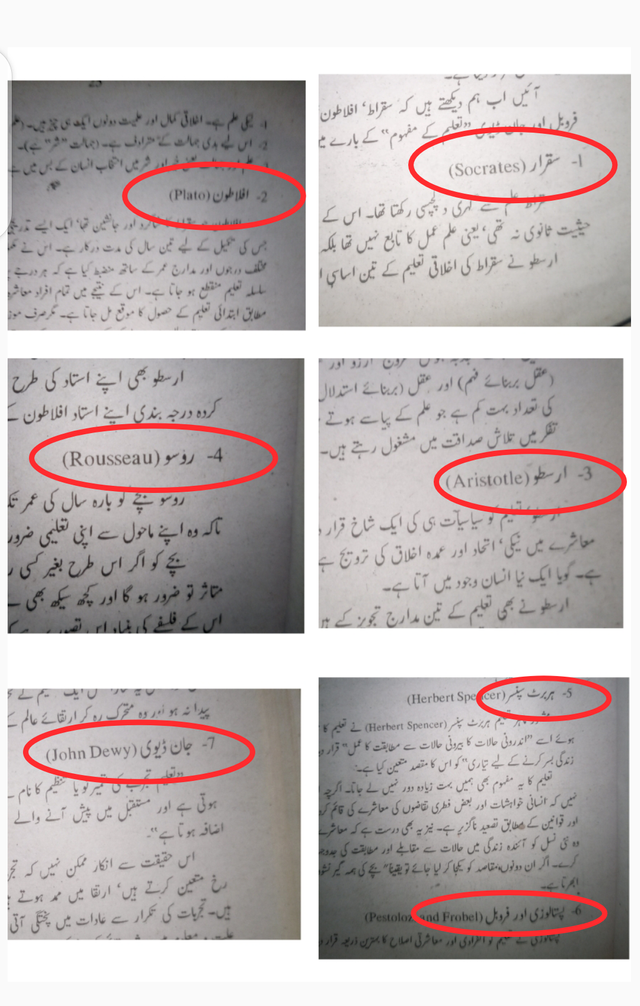 آئیں اب ہم دیکھتے ہیں کہ سقراط، افلاطون
فروبل اور جان ڈیوی "تعلیم کے مفہوم" کے بارے میں
1- سقرار (Socrates)
سقراط علم سے گہری دلچسپی رکھتا تھا۔ اس کے
حیثیت ثانوی نہ تھی، یعنی علم عمل کا تابع نہیں تھا بلکہ
ارسطو نے سقراط کی اخلاقی تعلیم کے تین اساسی
1- نیکی علم ہے۔ اخلاقی کمال اور علمیت دونوں ایک ہی چیز ہیں۔ (علم
2- اس لیے بدی جہالت کے مترادف ہے۔ (جہالت "شر" ہے)۔
3- علم اور خیر اور شر میں انتخاب انسان کے بس میں
2- افلاطون (Plato)
افلاطون سقراط کا شاگرد اور جانشین تھا، ایک ایسے تدریجی
جس کی تکمیل کے لیے تین سال کی مدت درکار ہے۔ اس نے
مختلف درجوں اور مدارج عمر کے ساتھ منضبط کیا ہے کہ ہر درجے
سلسلہ تعلیم منقطع ہو جاتا ہے۔ اس کے نتیجے میں تمام افراد معاشرہ
مطابق ابتدائی تعلیم کے حصول کا موقع مل جاتا ہے۔ مگر صرف
(عقل بربنائے فہم) اور عقل (بربنائے استدلال
کی تعداد بہت کم ہے جو علم کے پیاسے ہوتے
تفکر میں تلاش صداقت میں مشغول رہتے ہیں۔
3- ارسطو (Aristotle)
ارسطو تعلیم کو سیاسیات ہی کی ایک شاخ قرار
معاشرے میں نیکی، اتحاد اور عمدہ اخلاق کی ترویج ہے
ہے۔ گویا ایک نیا انسان وجود میں آتا ہے۔
ارسطو نے بھی تعلیم کے تین مدارج تجویز کیے ہیں
ارسطو بھی اپنے استاد کی طرح
کردہ درجہ بندی اپنے استاد افلاطون
4- روسو (Rousseau)
روسو بچے کو بارہ سال کی عمر تک
تاکہ وہ اپنے ماحول سے اپنی تعلیمی ضرور
بچے کو اگر اس طرح بغیر کسی
متاثر تو ضرور ہو گا اور کچھ سیکھ بھی
اس کے فلسفے کی بنیاد اس تصور
5- ہربرٹ سپنسر (Herbert Spencer)
تعلیم ہربرٹ سپنسر (Herbert Spencer) نے تعلیم کا
ہوئے اسے "اندرونی حالات کا بیرونی حالات سے مطابقت کا عمل" قرار
زندگی بسر کرنے کے لیے تیاری" کو اس کا مقصد متعین کیا ہے۔
تعلیم کا یہ مفہوم بھی ہمیں بہت زیادہ دور نہیں لے جاتا۔ اگرچہ
نہیں کہ انسانی خواہشات اور بعض فطری تقاضوں کی معاشرے کی قائم کردہ
اور قوانین کے مطابق تصعید ناگزیر ہے۔ نیز یہ بھی درست ہے کہ معاشرے
وہ نئی نسل کو آئندہ زندگی میں حالات سے مقابلے اور مطابقت کی جدوجہد
کرے۔ اگر ان دونوں مقاصد کو یکجا کر لیا جائے تو یقیناً "بچے کی ہمہ گیر نشو
ابھرتا ہے۔
6- پستالوزی اور فروبل (Pestolozi and Frobel)
پستالوزی نے تعلیم کو انفرادی اور معاشرتی اصلاح کا بہترین ذریعہ قرار
پیدا نہ ہو اور وہ متحرک رہ کر ارتقائے عالم کے
7- جان ڈیوی (John Dewy)
"تعلیم تجربے کی تعمیر نو یا تنظیم کا نام ہے
ہوتی ہے اور مستقبل میں پیش آنے والے
اضافہ ہوتا ہے"۔
اس حقیقت سے انکار ممکن نہیں کہ
رخ متعین کرتے ہیں، ارتقا میں ممد ہوتے
ہیں۔ تجربات کی تکرار سے عادات میں پختگی آتی